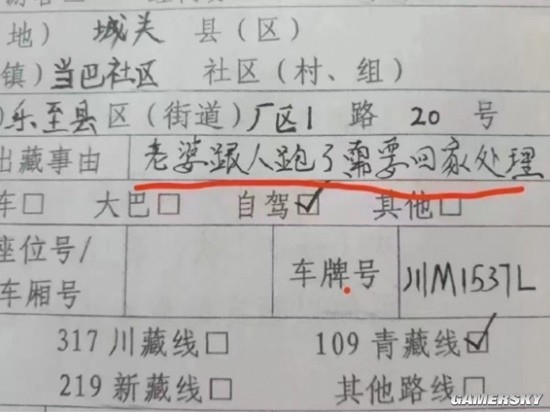 地） 城关 县（区）
镇）当巴社区 社区（村、组）
）乐至县区（街道）厂区1 路 20 号
出藏事由 老婆跟人跑了需要回家处理
车□ 大巴□ 自驾☑ 其他□
座位号/
车厢号
车牌号 川M1537L
317 川藏线□ 109 青藏线☑
219 新藏线□ 其他路线□
GAMERSKY